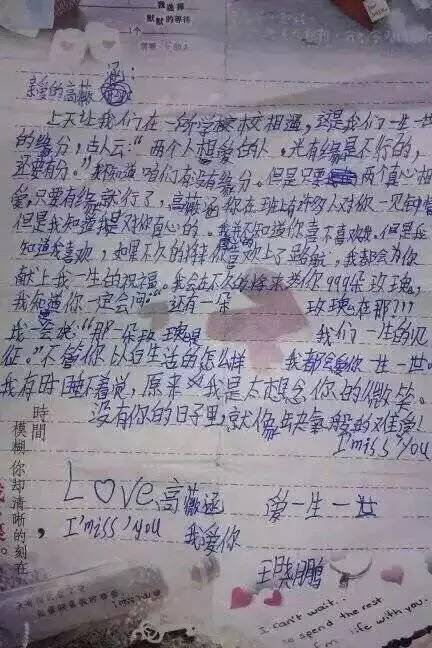 我选择
默默的等待
1个
亲爱的高薇涵:
上天让我们在一所学校相遇,这是我们一生一世
的缘分,古人云:“两个人想爱的人,光有缘是不行的,
还要有分。”我知道咱们有没有缘分。但是只要两个真心相
爱,只要有缘就行了,高薇涵你在班上有许多人对你一见钟情
但是我知道我是对你真心的。我不知道你喜不喜欢我,但是我
知道我喜欢,如果不久的将来你喜欢上了路航,我都会为你
献上我一生的祝福。我会在不久的将来送你999朵玫瑰,
我知道你一定会问“还有一朵 玫瑰在那???
我会说:“那一朵玫瑰是 我们一生的见
证。”不管你以后生活的怎么样 我都会爱你一生一世。
我有时睡不着觉,原来我是太想念你的微笑。
没有你的日子里,就像缺氧般的难受!
I'miss'you
時間
模糊你却清晰的刻在
Love高薇涵 爱一生一世
I'miss'you 我爱你
王晓鹏
I miss you
I can't wait...
to spend the rest
of my life with you.